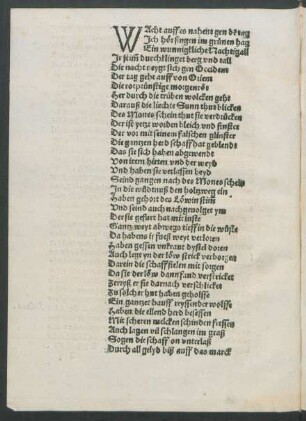 WAcht auff es nahent gen dē tag
Ich hör singen im grünen hag
Ein wunnigkliche Nachtigall
Jr stim̄ durchklinget berg vnd tall
Die nacht neygt sich gen Occident
Der tag geht auff von Orient
Die rotprünstige morgenröt
Her durch die trüben wolcken geht
Darauß die liechte Sunn thut blicken
Des Mones schein thut sie verdrücken
Der ist yetzt worden bleich vnd finster
Der vor mit seinem falschen glinster
Die gantzen herd schaff hat geblendt
Das sie sich haben abgewendt
Von irem hirten vnd der weyd
Vnd haben sie verlassen beyd
Seind gangen nach des Mones scheÿ
In die wildtnuß den holtzweg ein
Haben gehört des Löwen stim̄
Vnd seind auch nachgevolget ym
Der sie gefürt hat mit liste
Gantz weyt abwegs tieff in die wüste
Da habens ir süeß weyt verloren
Haben gessen vnkraut dystel doren
Auch legt yn der löw strick verborgen
Darein die schaff fielen mit sorgen
Da sie der löw dann fand verstricket
Zerryß er sie darnach verschlicket
Zu solcher hut haben geholffē
Ein gantzer hauff reyssender wolffe
Haben die ellend herd besessen
Mit scheren melcken schinden fressen
Auch lagen vil schlangen im graß
Sogen die schaff on vnterlaß
Durch all gelyd biß auff das marck